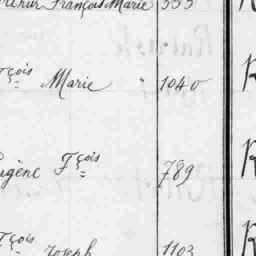 François Marie 553
Fçois Marie " 1040
Eugène Fçois 789
Fçois Joseph 1103